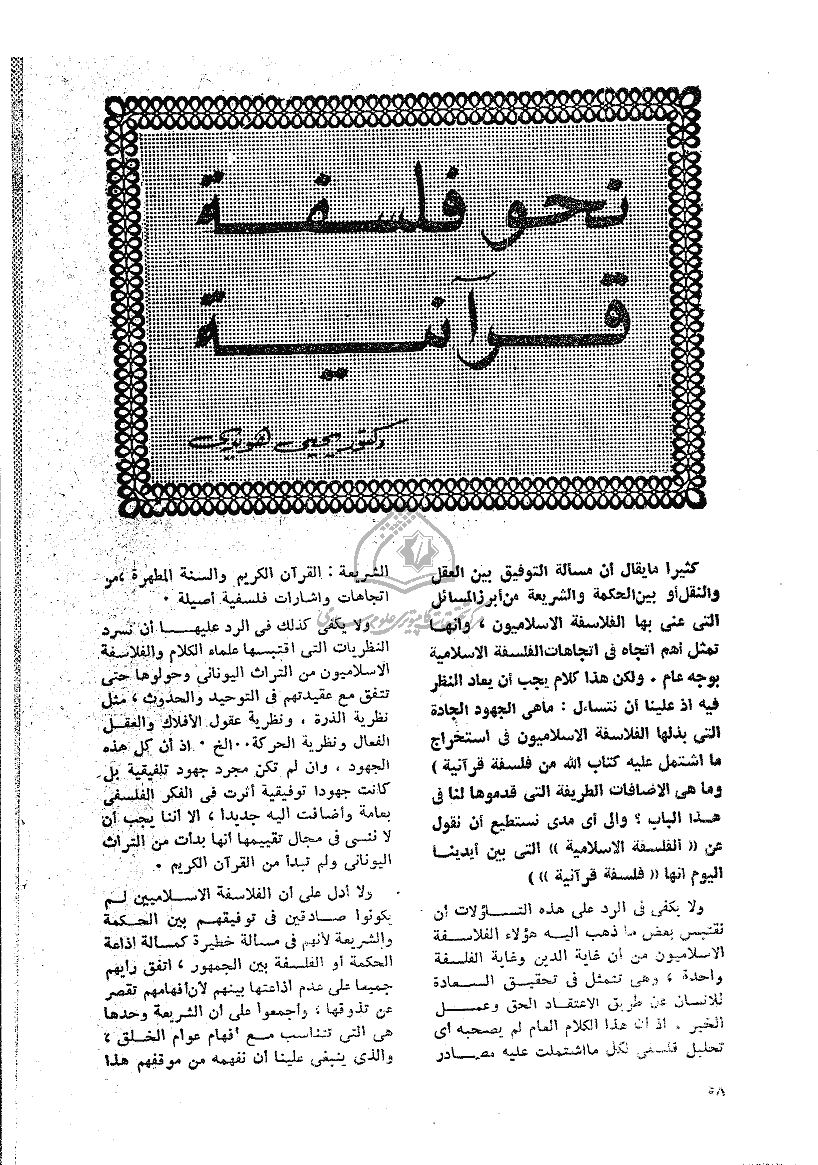 نحو فلسفة
قرآنية
دكتور يحيى هويدي
كثيرا مايقال أن مسألة التوفيق بين العقل
والنقل أو بين الحكمة والشريعة من أبرز المسائل
التى عنى بها الفلاسفة الاسلاميون ، وانها
تمثل أهم اتجاه فى اتجاهات الفلسفة الاسلامية
بوجه عام . ولكن هذا كلام يجب أن يعاد النظر
فيه اذ علينا أن نتساءل : ماهى الجهود الجادة
التى بذلها الفلاسفة الاسلاميون فى استخراج
ما اشتمل عليه كتاب الله من فلسفة قرآنية ؟
وما هى الاضافات الطريفة التى قدموها لنا فى
هذا الباب ؟ والى أى مدى نستطيع أن نقول
عن « الفلسفة الاسلامية » التى بين أيدينا
اليوم انها « فلسفة قرآنية » ؟
ولا يكفى فى الرد على هذه التساؤلات أن
نقتبس بعض ما ذهب اليه هؤلاء الفلاسفة
الاسلاميون من أن غاية الدين وغاية الفلسفة
واحدة ، وهى تتمثل فى تحقيق السعادة
للانسان عن طريق الاعتقاد الحق وعمل
الخير . اذ أن هذا الكلام العام لم يصحبه أى
تحليل فلسفى لكل ما اشتملت عليه مصادر
الشريعة : القرآن الكريم والسنة المطهرة ، من
اتجاهات واشارات فلسفية أصيلة .
ولا يكفى كذلك فى الرد عليها أن نسرد
النظريات التى اقتبسها علماء الكلام والفلاسفة
الاسلاميون من التراث اليونانى وحولوها حتى
تتفق مع عقيدتهم فى التوحيد والحدوث ، مثل
نظرية الذرة ، ونظرية عقول الأفلاك والعقل
الفعال ونظرية الحركة . . الخ . اذ أن كل هذه
الجهود ، وان لم تكن مجرد جهود تلفيقية بل
كانت جهودا توفيقية أثرت فى الفكر الفلسفى
بعامة وأضافت اليه جديدا ، الا أننا يجب أن
لا ننسى فى مجال تقييمها أنها بدأت من التراث
اليونانى ولم تبدأ من القرآن الكريم .
ولا أدل على أن الفلاسفة الاسلاميين لم
يكونوا صادقين فى توفيقهم بين الحكمة
والشريعة لأنهم فى مسألة خطيرة كمسألة اذاعة
الحكمة أو الفلسفة بين الجمهور ، اتفق رأيهم
جميعا على عدم اذاعتها بينهم لأن أفهامهم تقصر
عن تذوقها ، وأجمعوا على أن الشريعة وحدها
هى التى تتناسب مع أفهام عوام الخلق ،
والذى ينبغى علينا أن نفهمه من موقفهم هذا
٥٨